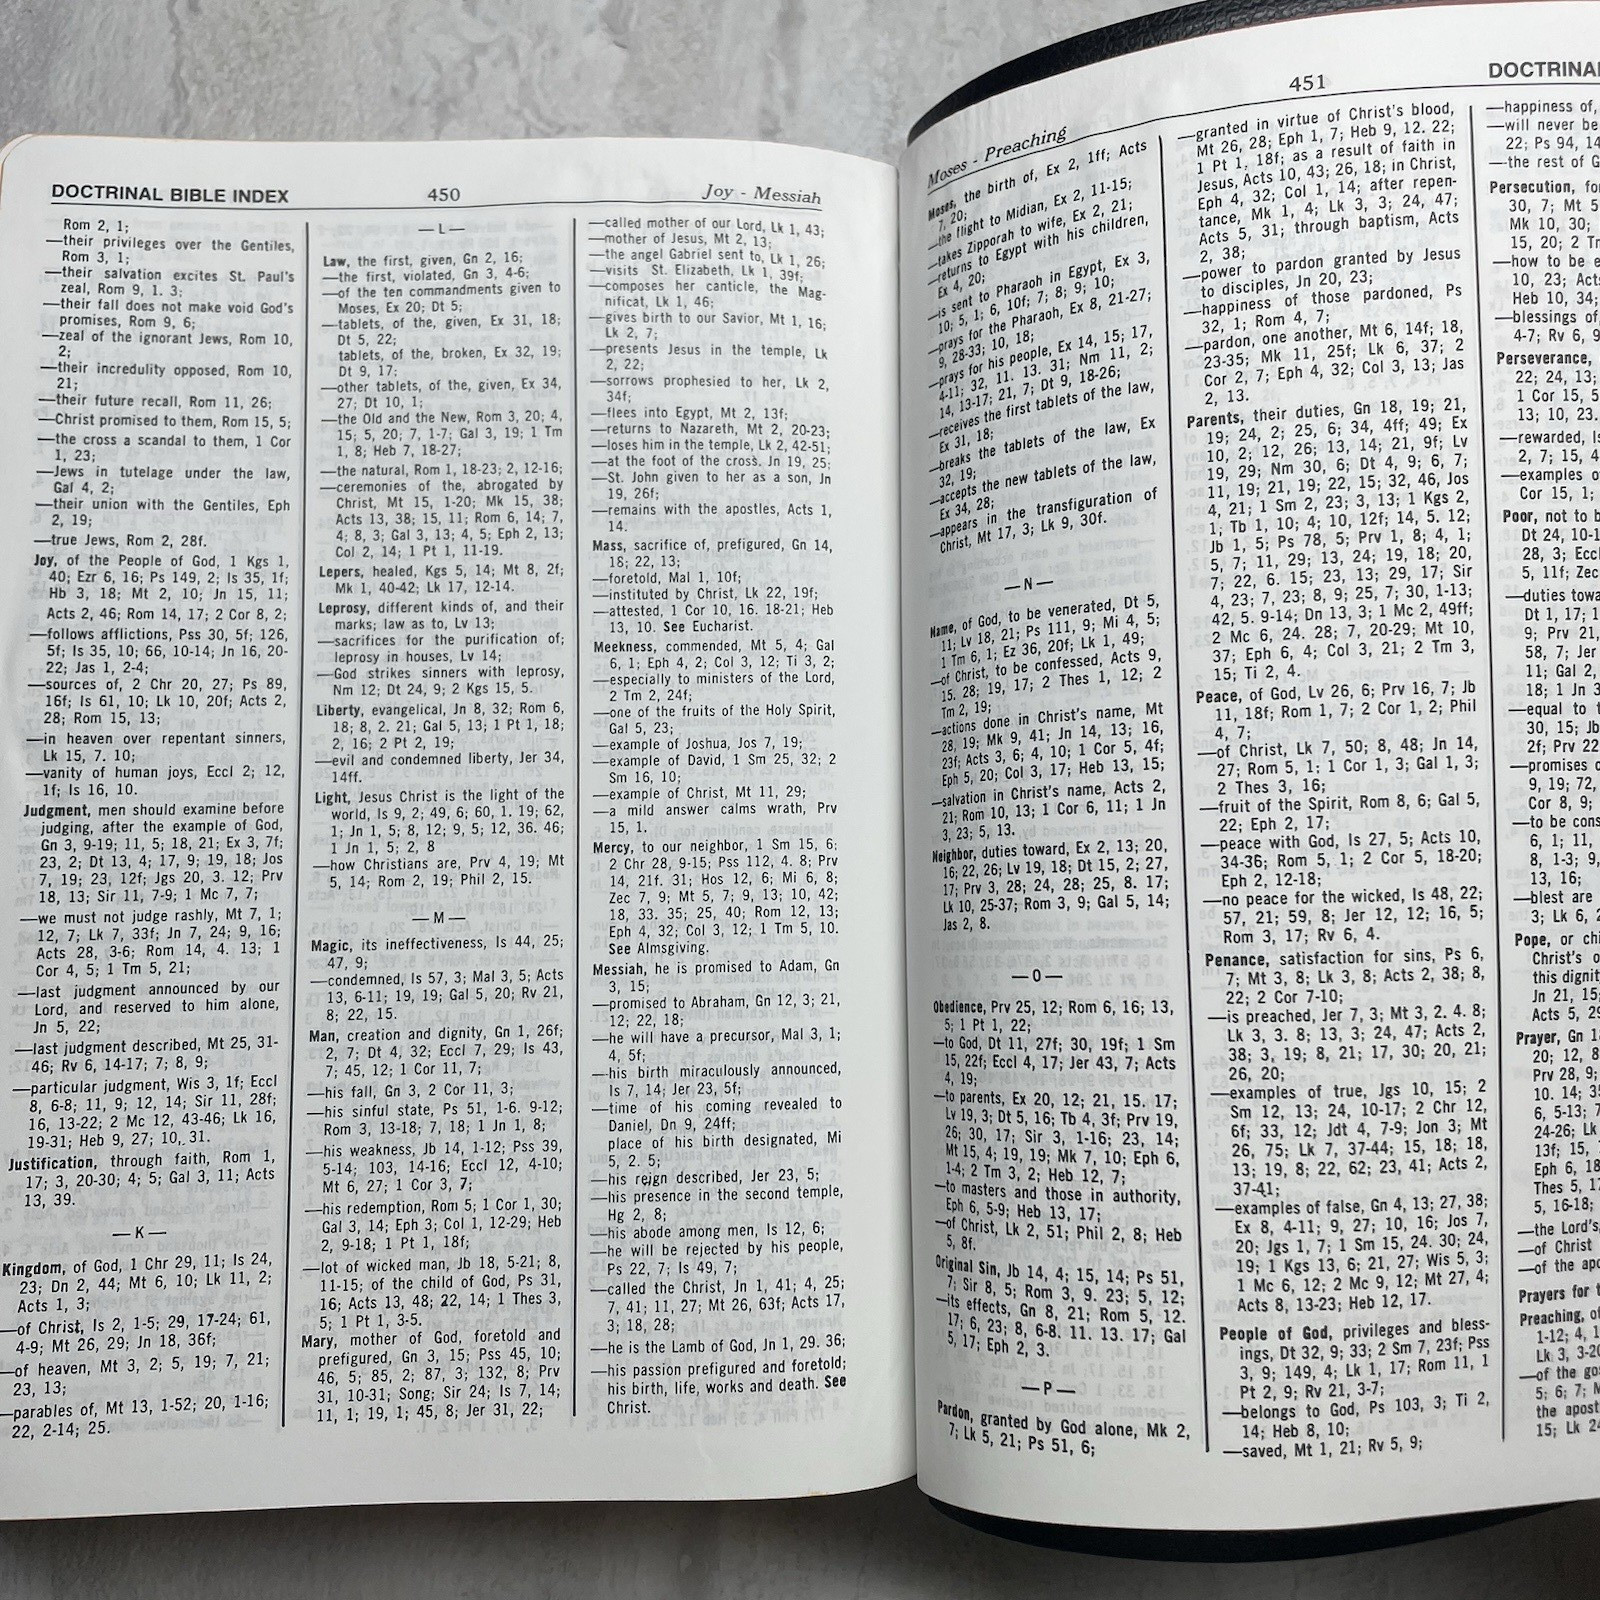 DOCTRINAL BIBLE INDEX 450 Joy - Messiah
Rom 2, 1;
—their privileges over the Gentiles,
Rom 3, 1;
—their salvation excites St. Paul's
zeal, Rom 9, 1. 3;
—their fall does not make void God's
promises, Rom 9, 6;
—zeal of the ignorant Jews, Rom 10,
2;
—their incredulity opposed, Rom 10,
21;
—their future recall, Rom 11, 26;
—Christ promised to them, Rom 15, 5;
—the cross a scandal to them, 1 Cor
1, 23;
—Jews in tutelage under the law,
Gal 4, 2;
—their union with the Gentiles, Eph
2, 19;
—true Jews, Rom 2, 28f.
Joy, of the People of God, 1 Kgs 1,
40; Ezr 6, 16; Ps 149, 2; Is 35, 1f;
Hb 3, 18; Mt 2, 10; Jn 15, 11;
Acts 2, 46; Rom 14, 17; 2 Cor 8, 2;
—follows afflictions, Pss 30, 5f; 126,
5f; Is 35, 10; 66, 10-14; Jn 16, 20-
22; Jas 1, 2-4;
—sources of, 2 Chr 20, 27; Ps 89,
16f; Is 61, 10; Lk 10, 20f; Acts 2,
28; Rom 15, 13;
—in heaven over repentant sinners,
Lk 15, 7. 10;
—vanity of human joys, Eccl 2; 12,
1f; Is 16, 10.
Judgment, men should examine before
judging, after the example of God,
Gn 3, 9-19; 11, 5; 18, 21; Ex 3, 7f;
23, 2; Dt 13, 4; 17, 9; 19, 18; Jos
7, 19; 23, 12f; Jgs 20, 3. 12; Prv
18, 13; Sir 11, 7-9; 1 Mc 7, 7;
—we must not judge rashly, Mt 7, 1;
12, 7; Lk 7, 33f; Jn 7, 24; 9, 16;
Acts 28, 3-6; Rom 14, 4. 13; 1
Cor 4, 5; 1 Tm 5, 21;
—last judgment announced by our
Lord, and reserved to him alone,
Jn 5, 22;
—last judgment described, Mt 25, 31-
46; Rv 6, 14-17; 7; 8, 9;
—particular judgment, Wis 3, 1f; Eccl
8, 6-8; 11, 9; 12, 14; Sir 11, 28f;
16, 13-22; 2 Mc 12, 43-46; Lk 16,
19-31; Heb 9, 27; 10, 31.
Justification, through faith, Rom 1,
17; 3, 20-30; 4; 5; Gal 3, 11; Acts
13, 39.
—K—
Kingdom, of God, 1 Chr 29, 11; Is 24,
23; Dn 2, 44; Mt 6, 10; Lk 11, 2;
Acts 1, 3;
—of Christ, Is 2, 1-5; 29, 17-24; 61,
4-9; Mt 26, 29; Jn 18, 36f;
—of heaven, Mt 3, 2; 5, 19; 7, 21;
23, 13;
—parables of, Mt 13, 1-52; 20, 1-16;
22, 2-14; 25.
—L—
Law, the first, given, Gn 2, 16;
—the first, violated, Gn 3, 4-6;
—of the ten commandments given to
Moses, Ex 20; Dt 5;
—tablets, of the, given, Ex 31, 18;
Dt 5, 22;
tablets, of the, broken, Ex 32, 19;
Dt 9, 17;
—other tablets, of the, given, Ex 34,
27; Dt 10, 1;
—the Old and the New, Rom 3, 20; 4,
15; 5, 20; 7, 1-7; Gal 3, 19; 1 Tm
1, 8; Heb 7, 18-27;
—the natural, Rom 1, 18-23; 2, 12-16;
—ceremonies of the, abrogated by
Christ, Mt 15, 1-20; Mk 15, 38;
Acts 13, 38; 15, 11; Rom 6, 14; 7,
4; 8, 3; Gal 3, 13; 4, 5; Eph 2, 13;
Col 2, 14; 1 Pt 1, 11-19.
Lepers, healed, Kgs 5, 14; Mt 8, 2f;
Mk 1, 40-42; Lk 17, 12-14.
Leprosy, different kinds of, and their
marks; law as to, Lv 13;
—sacrifices for the purification of;
leprosy in houses, Lv 14;
—God strikes sinners with leprosy,
Nm 12; Dt 24, 9; 2 Kgs 15, 5.
Liberty, evangelical, Jn 8, 32; Rom 6,
18; 8, 2. 21; Gal 5, 13; 1 Pt 1, 18;
2, 16; 2 Pt 2, 19;
—evil and condemned liberty, Jer 34,
14ff.
Light, Jesus Christ is the light of the
world, Is 9, 2; 49, 6; 60, 1. 19; 62,
1; Jn 1, 5; 8, 12; 9, 5; 12, 36. 46;
1 Jn 1, 5; 2, 8
—how Christians are, Prv 4, 19; Mt
5, 14; Rom 2, 19; Phil 2, 15.
—M—
Magic, its ineffectiveness, Is 44, 25;
47, 9;
—condemned, Is 57, 3; Mal 3, 5; Acts
13, 6-11; 19, 19; Gal 5, 20; Rv 21,
8; 22, 15.
Man, creation and dignity, Gn 1, 26f;
2, 7; Dt 4, 32; Eccl 7, 29; Is 43,
7; 45, 12; 1 Cor 11, 7;
—his fall, Gn 3, 2 Cor 11, 3;
—his sinful state, Ps 51, 1-6. 9-12;
Rom 3, 13-18; 7, 18; 1 Jn 1, 8;
—his weakness, Jb 14, 1-12; Pss 39,
5-14; 103, 14-16; Eccl 12, 4-10;
Mt 6, 27; 1 Cor 3, 7;
—his redemption, Rom 5; 1 Cor 1, 30;
Gal 3, 14; Eph 3; Col 1, 12-29; Heb
2, 9-18; 1 Pt 1, 18f;
—lot of wicked man, Jb 18, 5-21; 8,
11-15; of the child of God, Ps 31,
16; Acts 13, 48; 22, 14; 1 Thes 3,
5; 1 Pt 1, 3-5.
Mary, mother of God, foretold and
prefigured, Gn 3, 15; Pss 45, 10;
46, 5; 85, 2; 87, 3; 132, 8; Prv
31, 10-31; Song; Sir 24; Is 7, 14;
11, 1; 19, 1; 45, 8; Jer 31, 22;
—called mother of our Lord, Lk 1, 43;
—mother of Jesus, Mt 2, 13;
—the angel Gabriel sent to, Lk 1, 26;
—visits St. Elizabeth, Lk 1, 39f;
—composes her canticle, the Mag-
nificat, Lk 1, 46;
—gives birth to our Savior, Mt 1, 16;
Lk 2, 7;
—presents Jesus in the temple, Lk
2, 22;
—sorrows prophesied to her, Lk 2,
34f;
—flees into Egypt, Mt 2, 13f;
—returns to Nazareth, Mt 2, 20-23;
—loses him in the temple, Lk 2, 42-51;
—at the foot of the cross. Jn 19, 25;
—St. John given to her as a son, Jn
19, 26f;
—remains with the apostles, Acts 1,
14.
Mass, sacrifice of, prefigured, Gn 14,
18; 22, 13;
—foretold, Mal 1, 10f;
—instituted by Christ, Lk 22, 19f;
—attested, 1 Cor 10, 16. 18-21; Heb
13, 10. See Eucharist.
Meekness, commended, Mt 5, 4; Gal
6, 1; Eph 4, 2; Col 3, 12; Ti 3, 2;
—especially to ministers of the Lord,
2 Tm 2, 24f;
—one of the fruits of the Holy Spirit,
Gal 5, 23;
—example of Joshua, Jos 7, 19;
—example of David, 1 Sm 25, 32; 2
Sm 16, 10;
—example of Christ, Mt 11, 29;
—a mild answer calms wrath, Prv
15, 1.
Mercy, to our neighbor, 1 Sm 15, 6;
2 Chr 28, 9-15; Pss 112, 4. 8; Prv
14, 21f. 31; Hos 12, 6; Mi 6, 8;
Zec 7, 9; Mt 5, 7; 9, 13; 10, 42;
18, 33. 35; 25, 40; Rom 12, 13;
Eph 4, 32; Col 3, 12; 1 Tm 5, 10.
See Almsgiving.
Messiah, he is promised to Adam, Gn
3, 15;
—promised to Abraham, Gn 12, 3; 21,
12; 22, 18;
—he will have a precursor, Mal 3, 1;
4, 5f;
—his birth miraculously announced,
Is 7, 14; Jer 23, 5f;
—time of his coming revealed to
Daniel, Dn 9, 24ff;
place of his birth designated, Mi
5, 2. 5;
—his reign described, Jer 23, 5;
—his presence in the second temple,
Hg 2, 8;
—his abode among men, Is 12, 6;
—he will be rejected by his people,
Ps 22, 7; Is 49, 7;
—called the Christ, Jn 1, 41; 4, 25;
7, 41; 11, 27; Mt 26, 63f; Acts 17,
3; 18, 28;
—he is the Lamb of God, Jn 1, 29. 36;
—his passion prefigured and foretold;
his birth, life, works and death. See
Christ.
Moses - Preaching 451 DOCTRINAL
Moses, the birth of, Ex 2, 1ff; Acts
7, 20;
—the flight to Midian, Ex 2, 11-15;
—takes Zipporah to wife, Ex 2, 21;
—returns to Egypt with his children,
Ex 4, 20;
—is sent to Pharaoh in Egypt, Ex 3,
10; 5, 1; 6, 10f; 7; 8; 9; 10;
—prays for the Pharaoh, Ex 8, 21-27;
9, 28-33; 10, 18;
—prays for his people, Ex 14, 15; 17,
4-11; 32, 11. 13. 31; Nm 11, 2;
14, 13-17; 21, 7; Dt 9, 18-26;
—receives the first tablets of the law,
Ex 31, 18;
—breaks the tablets of the law, Ex
32, 19;
—accepts the new tablets of the law,
Ex 34, 28;
—appears in the transfiguration of
Christ, Mt 17, 3; Lk 9, 30f.
—N—
Name, of God, to be venerated, Dt 5,
11; Lv 18, 21; Ps 111, 9; Mi 4, 5;
1 Tm 6, 1; Ez 36, 20f; Lk 1, 49;
—of Christ, to be confessed, Acts 9,
15. 28; 19, 17; 2 Thes 1, 12; 2
Tm 2, 19;
—actions done in Christ's name, Mt
28, 19; Mk 9, 41; Jn 14, 13; 16,
23f; Acts 3, 6; 4, 10; 1 Cor 5, 4f;
Eph 5, 20; Col 3, 17; Heb 13, 15;
—salvation in Christ's name, Acts 2,
21; Rom 10, 13; 1 Cor 6, 11; 1 Jn
3, 23; 5, 13.
Neighbor, duties toward, Ex 2, 13; 20,
16; 22, 26; Lv 19, 18; Dt 15, 2; 27,
17; Prv 3, 28; 24, 28; 25, 8. 17;
Lk 10, 25-37; Rom 3, 9; Gal 5, 14;
Jas 2, 8.
—O—
Obedience, Prv 25, 12; Rom 6, 16; 13,
5; 1 Pt 1, 22;
—to God, Dt 11, 27f; 30, 19f; 1 Sm
15, 22f; Eccl 4, 17; Jer 43, 7; Acts
4, 19;
—to parents, Ex 20, 12; 21, 15. 17;
Lv 19, 3; Dt 5, 16; Tb 4, 3f; Prv 19,
26; 30, 17; Sir 3, 1-16; 23, 14;
Mt 15, 4; 19, 19; Mk 7, 10; Eph 6,
1-4; 2 Tm 3, 2; Heb 12, 7;
—to masters and those in authority,
Eph 6, 5-9; Heb 13, 17;
—of Christ, Lk 2, 51; Phil 2, 8; Heb
5, 8f.
Original Sin, Jb 14, 4; 15, 14; Ps 51,
7; Sir 8, 5; Rom 3, 9. 23; 5, 12;
—its effects, Gn 8, 21; Rom 5, 12.
17; 6, 23; 8, 6-8. 11. 13. 17; Gal
5, 17; Eph 2, 3.
—P—
Pardon, granted by God alone, Mk 2,
7; Lk 5, 21; Ps 51, 6;
—granted in virtue of Christ's blood,
Mt 26, 28; Eph 1, 7; Heb 9, 12. 22;
1 Pt 1, 18f; as a result of faith in
Jesus, Acts 10, 43; 26, 18; in Christ,
Eph 4, 32; Col 1, 14; after repen-
tance, Mk 1, 4; Lk 3, 3; 24, 47;
Acts 5, 31; through baptism, Acts
2, 38;
—power to pardon granted by Jesus
to disciples, Jn 20, 23;
—happiness of those pardoned, Ps
32, 1; Rom 4, 7;
—pardon, one another, Mt 6, 14f; 18,
23-35; Mk 11, 25f; Lk 6, 37; 2
Cor 2, 7; Eph 4, 32; Col 3, 13; Jas
2, 13.
Parents, their duties, Gn 18, 19; 21,
19; 24, 2; 25, 6; 34, 4ff; 49; Ex
10, 2; 12, 26; 13, 14; 21, 9f; Lv
19, 29; Nm 30, 6; Dt 4, 9; 6, 7;
11, 19; 21, 19; 22, 15; 32, 46, Jos
4, 21; 1 Sm 2, 23; 3, 13; 1 Kgs 2,
1; Tb 1, 10; 4; 10, 12f; 14, 5. 12;
Jb 1, 5; Ps 78, 5; Prv 1, 8; 4, 1;
5, 7; 11, 29; 13, 24; 19, 18; 20,
7; 22, 6. 15; 23, 13; 29, 17; Sir
4, 23; 7, 23; 8, 9; 25, 7; 30, 1-13;
42, 5. 9-14; Dn 13, 3; 1 Mc 2, 49ff;
2 Mc 6, 24. 28; 7, 20-29; Mt 10,
37; Eph 6, 4; Col 3, 21; 2 Tm 3,
15; Ti 2, 4.
Peace, of God, Lv 26, 6; Prv 16, 7; Jb
11, 18f; Rom 1, 7; 2 Cor 1, 2; Phil
4, 7;
—of Christ, Lk 7, 50; 8, 48; Jn 14,
27; Rom 5, 1; 1 Cor 1, 3; Gal 1, 3;
2 Thes 3, 16;
—fruit of the Spirit, Rom 8, 6; Gal 5,
22; Eph 2, 17;
—peace with God, Is 27, 5; Acts 10,
34-36; Rom 5, 1; 2 Cor 5, 18-20;
Eph 2, 12-18;
—no peace for the wicked, Is 48, 22;
57, 21; 59, 8; Jer 12, 12; 16, 5;
Rom 3, 17; Rv 6, 4.
Penance, satisfaction for sins, Ps 6,
7; Mt 3, 8; Lk 3, 8; Acts 2, 38; 8,
22; 2 Cor 7-10;
—is preached, Jer 7, 3; Mt 3, 2. 4. 8;
Lk 3, 3. 8; 13, 3; 24, 47; Acts 2,
38; 3, 19; 8, 21; 17, 30; 20, 21;
26, 20;
—examples of true, Jgs 10, 15; 2
Sm 12, 13; 24, 10-17; 2 Chr 12,
6f; 33, 12; Jdt 4, 7-9; Jon 3; Mt
26, 75; Lk 7, 37-44; 15, 18; 18,
13; 19, 8; 22, 62; 23, 41; Acts 2,
37-41;
—examples of false, Gn 4, 13; 27, 38;
Ex 8, 4-11; 9, 27; 10, 16; Jos 7,
20; Jgs 1, 7; 1 Sm 15, 24. 30; 24,
19; 1 Kgs 13, 6; 21, 27; Wis 5, 3;
1 Mc 6, 12; 2 Mc 9, 12; Mt 27, 4;
Acts 8, 13-23; Heb 12, 17.
People of God, privileges and bless-
ings, Dt 32, 9; 33; 2 Sm 7, 23f; Pss
3, 9; 149, 4; Lk 1, 17; Rom 11, 1
Pt 2, 9; Rv 21, 3-7;
—belongs to God, Ps 103, 3; Ti 2,
14; Heb 8, 10;
—saved, Mt 1, 21; Rv 5, 9;
—happiness of,
—will never be
22; Ps 94, 14
—the rest of G
Persecution, fo
30, 7; Mt 5
Mk 10, 30;
15, 20; 2 T
—how to be e
10, 23; Acts
Heb 10, 34;
—blessings of
4-7; Rv 6, 9
Perseverance,
22; 24, 13;
1 Cor 15, 5
13; 10, 23.
—rewarded, Is
2, 7; 15, 4
—examples o
Cor 15, 1;
Poor, not to b
Dt 24, 10-1
28, 3; Eccl
5, 11f; Zec
—duties towa
Dt 1, 17; 1
9; Prv 21,
58, 7; Jer
11; Gal 2,
18; 1 Jn 3
—equal to t
30, 15; Jb
2f; Prv 22
—promises o
9, 19; 72,
Cor 8, 9;
—to be cons
6, 1; 11,
8, 1-3; 9,
13, 16;
—blest are
3; Lk 6, 2
Pope, or chi
Christ's o
this dignit
Jn 21, 15;
Acts 5, 29
Prayer, Gn 1
20; 12, 8
Prv 28, 9;
10. 14; 35
6, 5-13; 7
24-26; Lk
13f; 15,
Eph 6, 18
Thes 5, 17
5, 16-18;
—the Lord's,
—of Christ
—of the apo
Prayers for t
Preaching, of
1-12; 4, 1
Lk 3, 3-20
—of the gos
5; 6; 7; M
the apost
15; Lk 24